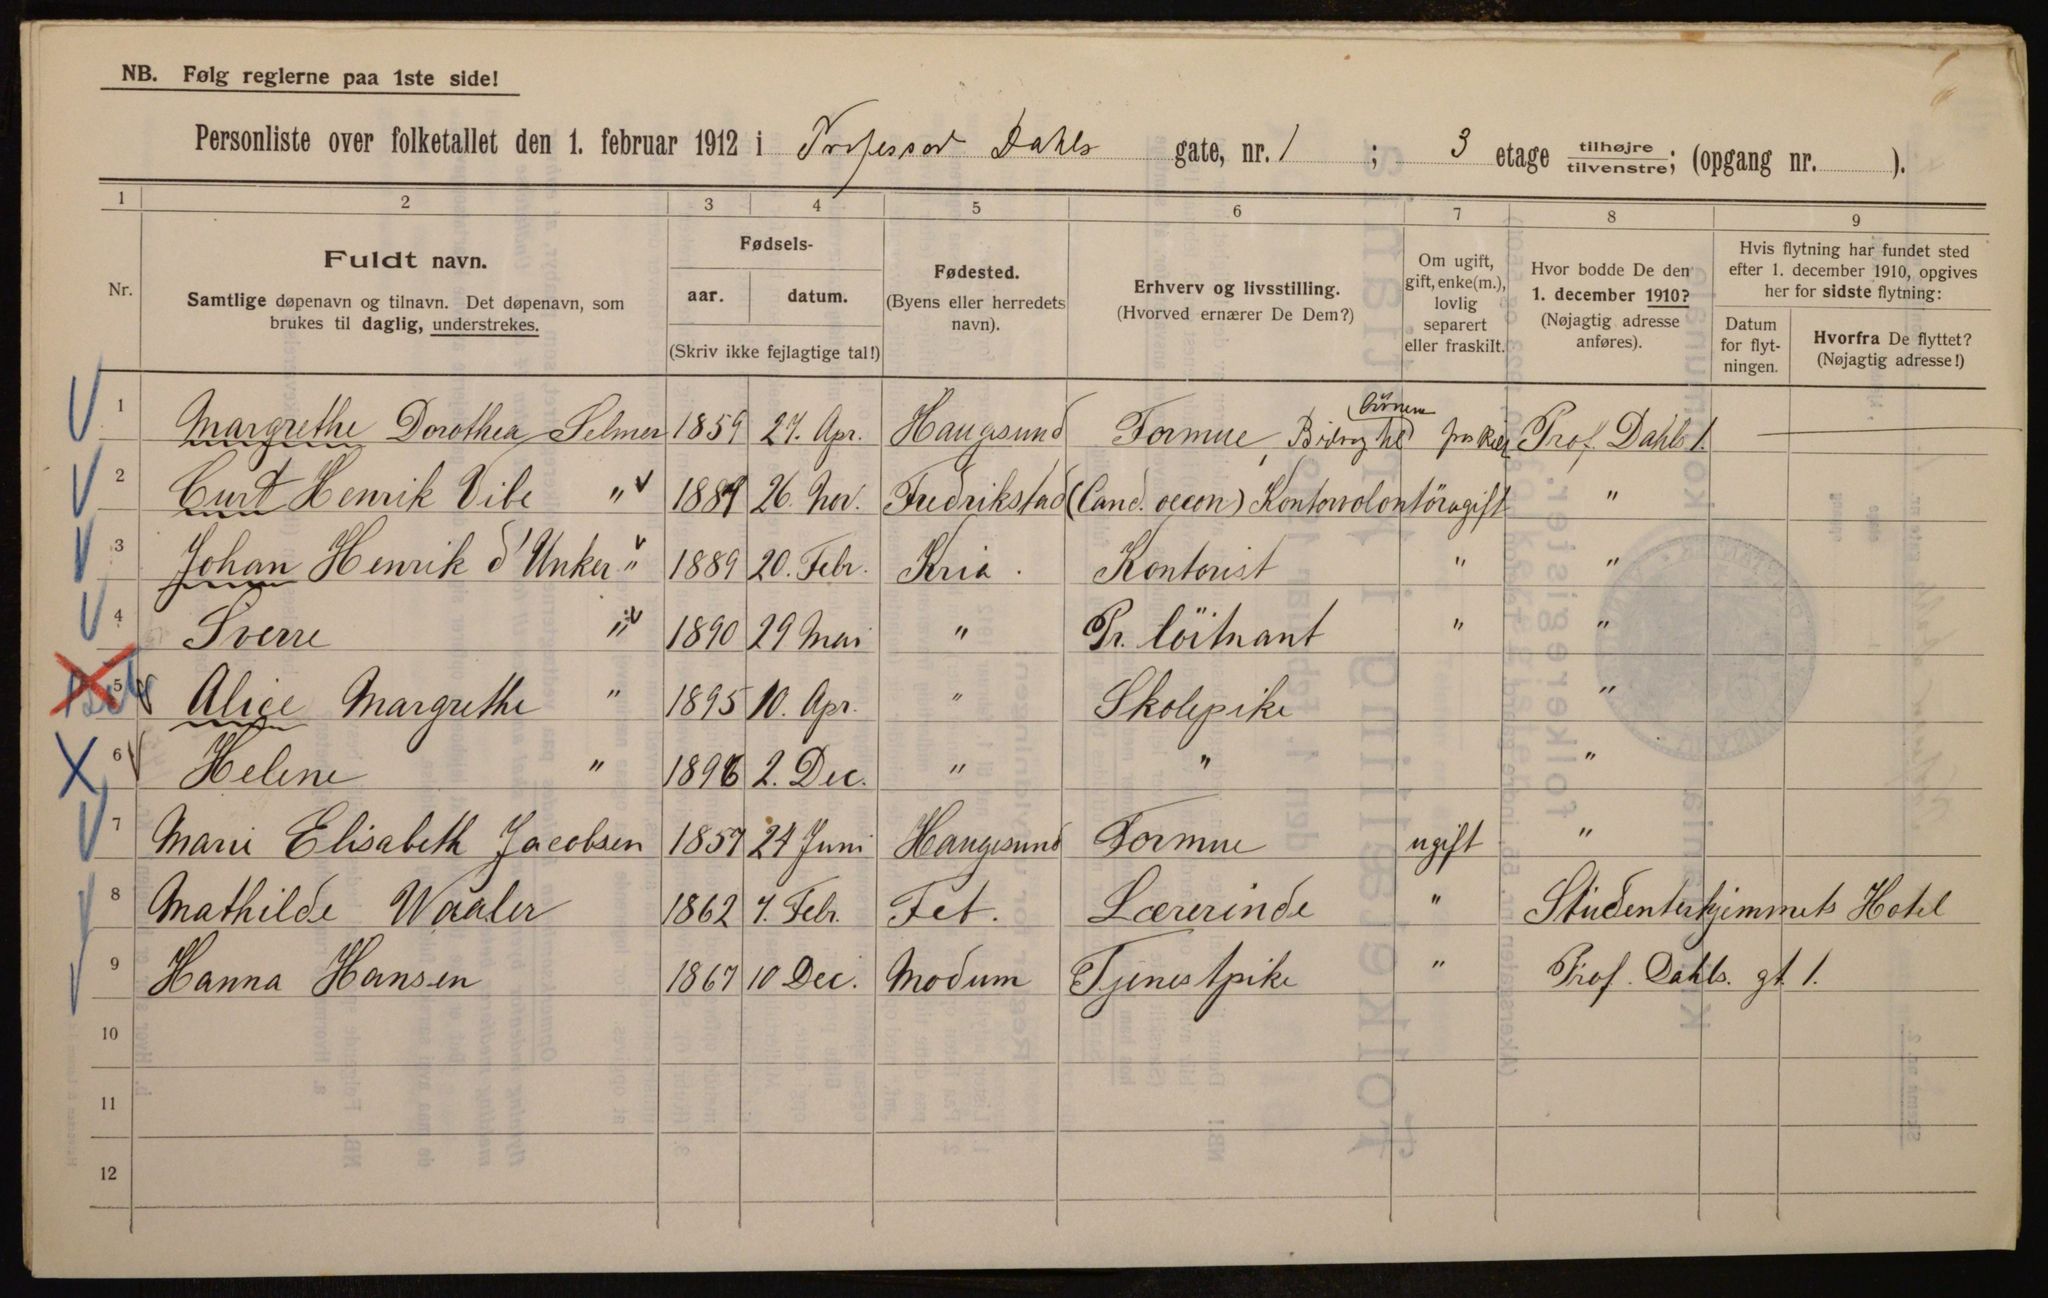 NB. Følg reglerne paa 1ste side!
Personliste over folketallet den 1. februar 1912 i Professor Dahls gate, nr. 1 ; 3 etage tilhøjre/tilvenstre; (opgang nr. ).
1 2 3 4 5 6 7 8 9
Nr.
Fuldt navn.
Samtlige døpenavn og tilnavn. Det døpenavn, som
brukes til daglig, understrekes.
Fødsels-
aar. datum.
(Skriv ikke fejlagtige tal!)
Fødested.
(Byens eller herredets
navn).
Erhverv og livsstilling.
(Hvorved ernærer De Dem?)
Om ugift,
gift, enke(m.),
lovlig
separert
eller fraskilt.
Hvor bodde De den
1. december 1910?
(Nøjagtig adresse
anføres).
Hvis flytning har fundet sted
efter 1. december 1910, opgives
her for sidste flytning:
Datum
for flyt-
ningen.
Hvorfra De flyttet?
(Nøjagtig adresse!)
1 Margrethe Dorothea Selmer 1859 27. Apr. Haugesund Formue, Bidrag Prof. Dahls 1.
2 Curt Henrik Vibe " 26. Nov. Fredrikstad (Cand. oecon) Kontorvolontör ugift "
3 Johan Henrik d'Unker " 1889 20. Febr. Kria. Kontorist " "
4 Sverre " 1890 29 Mai " Pr. löitnant " "
5 Alice Margrethe " 1895 10. Apr. " Skolepike "
6 Helene " 1896 2. Dec. " " "
7 Marie Elisabeth Jacobsen 1857 24 Juni Haugesund Formue ugift "
8 Mathilde Waaler 1862 7. Febr. Fet. Lærerinde " Studenterhjemmets Hotel
9 Hanna Hansen 1867 10 Dec. Modum Tjenestpike " Prof. Dahls. gt. 1.
10
11
12